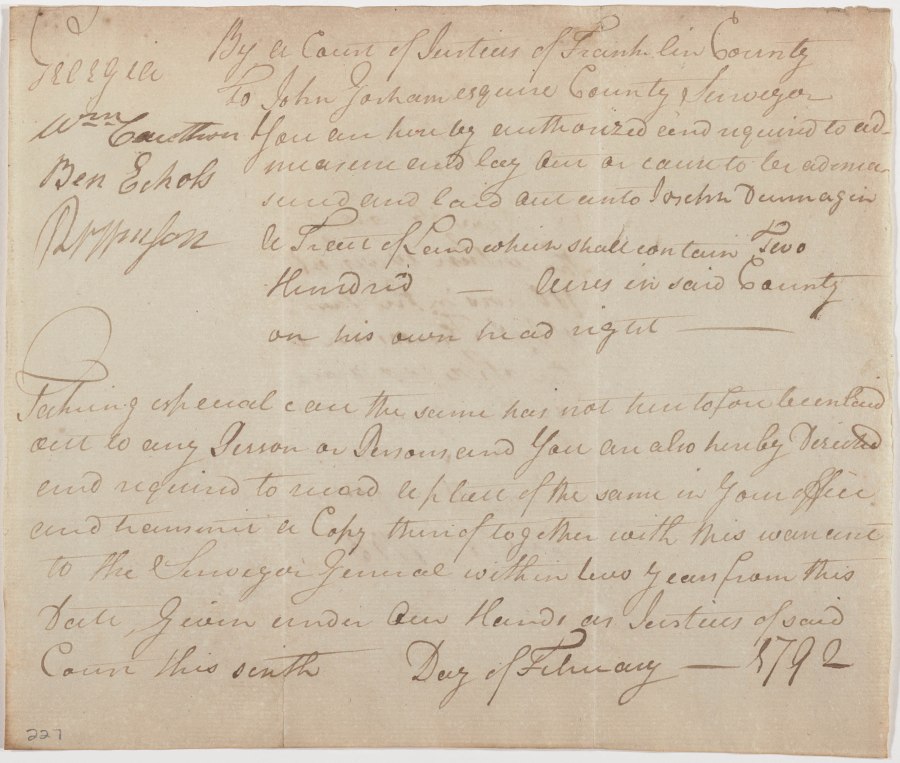 Georgia
By a Court of Justices of Franklin County
To John Gorham esquire County Surveyor
Wm Cawthon
Ben Echols
You are hereby authorized and required to ad-
measure and lay out or cause to be admea-
sured and laid out unto Joseph Dunnagin
A Tract of Land which shall contain Two
Hundrid — Acres in said County
on his own head right —
Taking especial care the same has not heretofore been laid
out to any Person or Persons and You are also hereby Directed
and required to record a platt of the same in Your office
and transmit a Copy thereof together with this warrant
to the Surveyor General within two years from this
Date, Given under Our Hands as Justices of said
Court this sixth Day of February — 1792
227